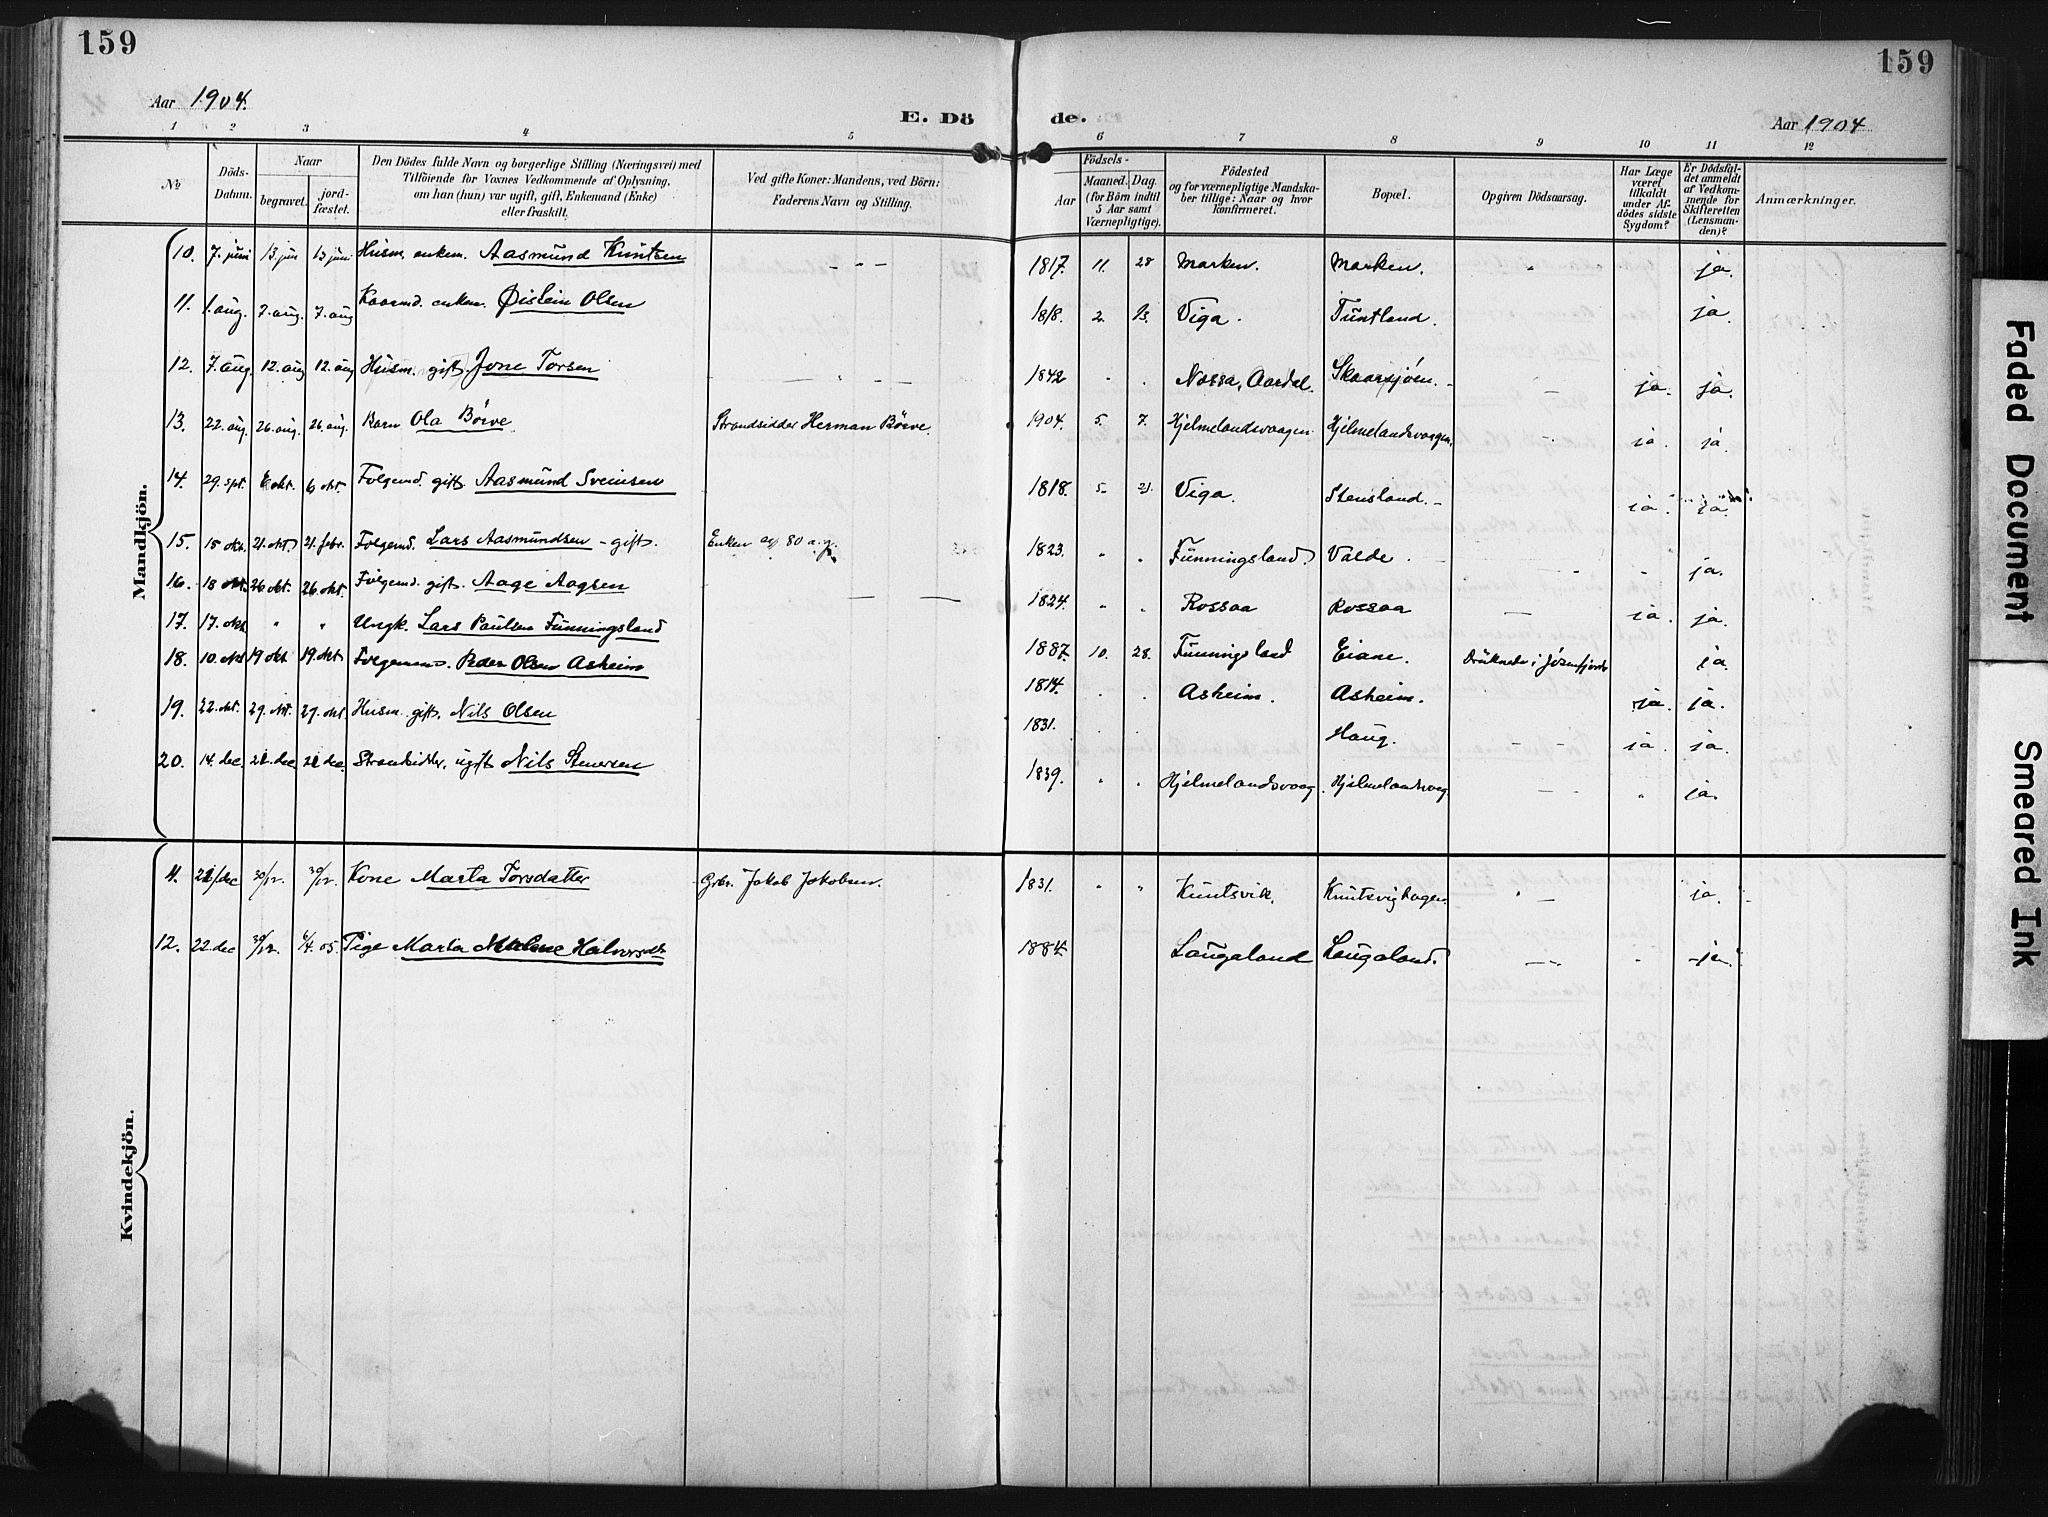 159
159
Aar 1904.
E. Döde.
Aar 1904
1 2 3 4 5 6 7 8 9 10 11 12
№
Döds-Datum.
Naar
begravet.
jord-fæstet.
Den Dödes fulde Navn og borgerlige Stilling (Næringsvei) med
Tilföiende for Voxnes Vedkommende af Oplysning,
om han (hun) var ugift, gift, Enkemand (Enke)
eller fraskilt.
Ved gifte Koner: Mandens, ved Börn:
Faderens Navn og Stilling.
Födsels-
Aar
Maaned. Dag.
(for Börn indtil
5 Aar samt
Værnepligtige).
Födested
og for værnepligtige Mandska-
ber tillige: Naar og hvor
konfirmeret.
Bopæl.
Opgiven Dödsaarsag.
Har Læge
været
tilkaldt
under Af-
dödes sidste
Sygdom?
Er Dödsfal-
det anmeldt
af Vedkom-
mende for
Skifteretten
(Lensman-
den)?
Anmærkninger.
Mandkjön.
10. 7. juni 13. jun 13 juni Husm. enkem. Aasmund Knutsen - - - 1817. 11. 28 Marken. Marken. " ja.
11. 1. aug. 7. aug. 7. aug Kaarmd. enkem. Øistein Olsen 1818. 2. 13. Viga. Tuntland. ja.
12. 7. aug. 12. aug 12. aug Husm. gift Jone Torsen - - - - 1842 " " Nessa, Aardal. Skaarsjöen. - ja. ja.
13. 22. aug. 26. aug. 26. aug. Barn Ola Börve. Strandsidder Herman Börve. 1904. 5. 7. Hjelmelandsvaagen Hjelmelandsvaagen. - ja. ja.
14. 29. spt. 6 okt. 6 okt. Folgemd. gift. Aasmund Sveinsen 1818. 5. 21. Viga. Stensland. - ja. ja.
15. 15 okt. 21. okt. 21. febr. Folgemd. Lars Aasmundsen - gift. Enken 80 a. g. 1823. " " Funningsland. Valde. - " ja.
16. 18 okt. 26 okt. 26. okt. Folgemd. gift. Aage Aagsen - - 1824. " " Rossaa Rossaa - ja. ja.
17. 17. okt. " " Ungk. Lars Paulsen Funningsland 1887. 10. 28. Funningsland Eiane. Druknede i Jösenfjorde ja.
18. 10. okt 19 okt 19. okt Folgemand. Peder Olsen Asheim 1814. " " Asheim. Asheim. ja. ja.
19. 22. okt. 29. okt. 29. okt. Husm. gift. Nils Olsen 1831. Haug. - - ja. ja.
20. 14. dec. 21. dec 21 dec. Strandsidder, ugift Nils Stenersen 1839. " " Hjelmelandsvaag. Hjelmelandsvaag. - " ja.
Kvindekjön.
11. 21/dec 30/12. 30/12. Kone Marta Torsdatter Grbr. Jakob Jakobsen. 1831. " " Knutsvik. Knutsvighagen. " - ja.
12. 22. dec 30/12. 6/4. 05. Pige Marta Malene Halvorsdt. 1884. Laugaland Laugaland. - " ja.
Faded Document
Smeared Ink